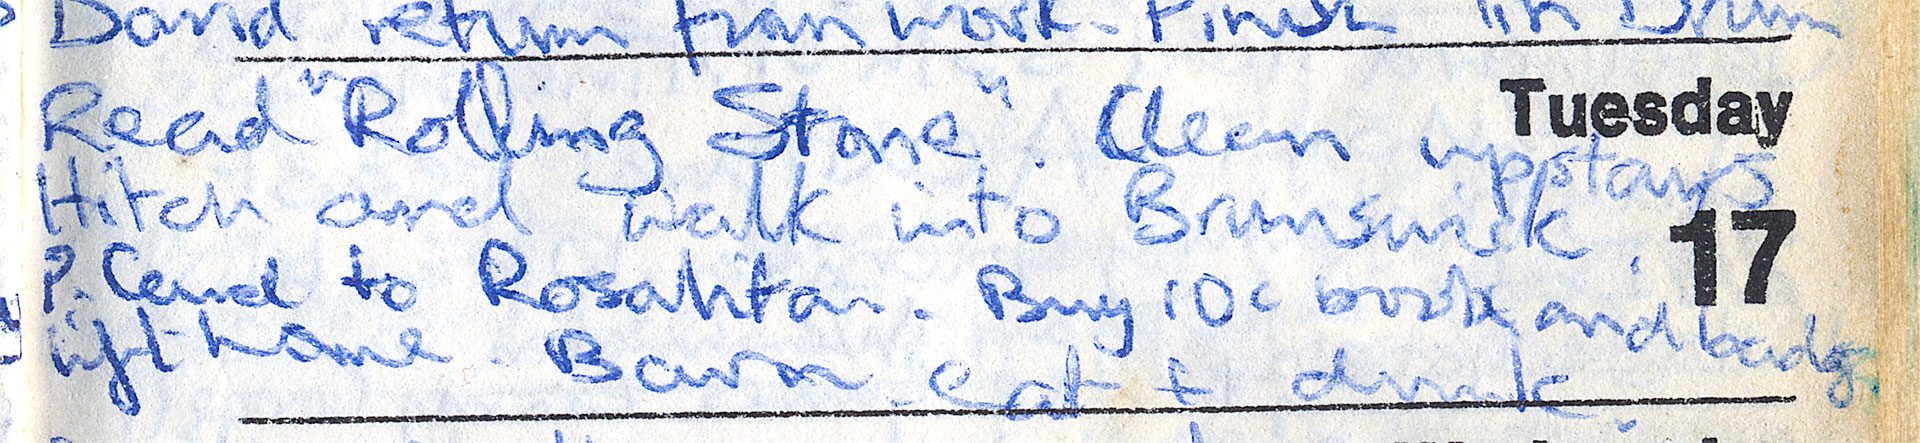 David return from work. Finish "in Drum
Read "Rolling Stone". Clean uppstays
Tuesday
Hitch and walk into Brunswick.
17
P. Card to Rosalita. Buy 10c book and badge
lift home. Barn. Eat + drink.